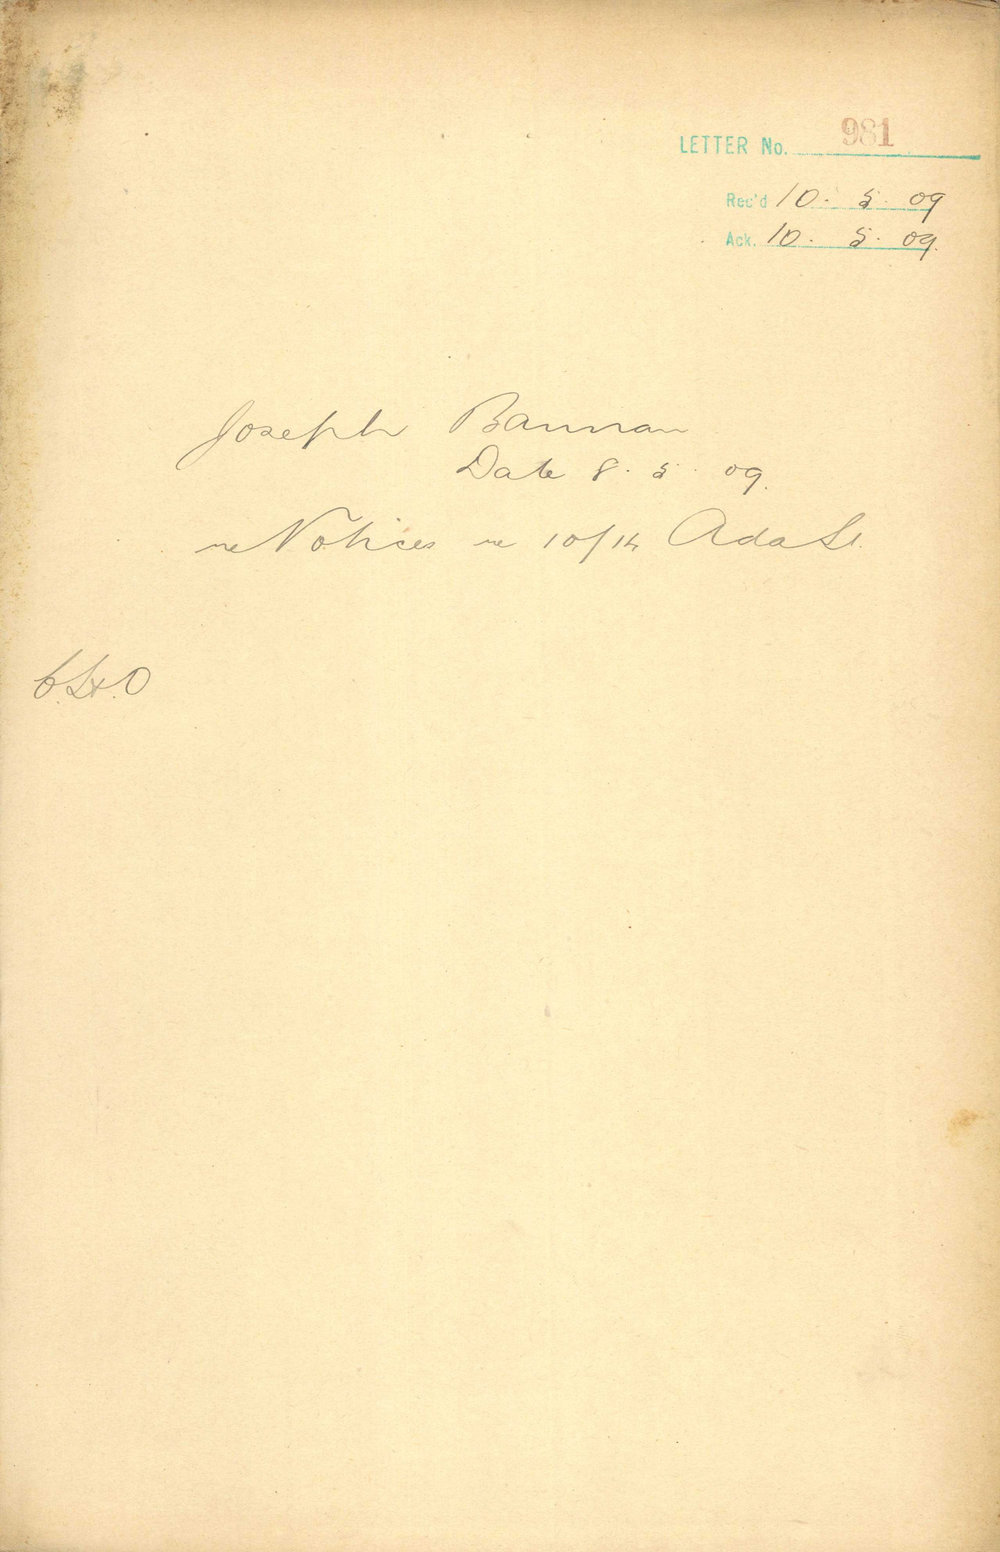 LETTER No. 981
Rec'd 10. 5. 09
Ack. 10. 5. 09.
Joseph Bannan
Date 8. 5. 09.
re Notices re 10/14 Ada St.
C.H.O